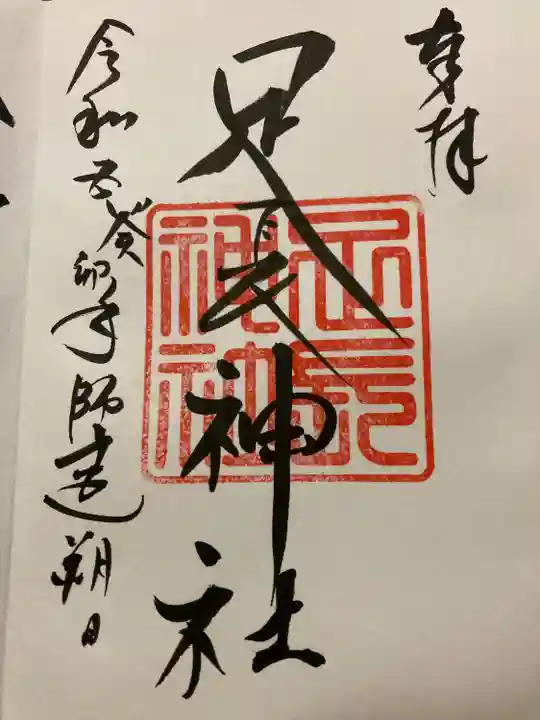 奉拝
足長神社
令和五癸卯年師走朔日